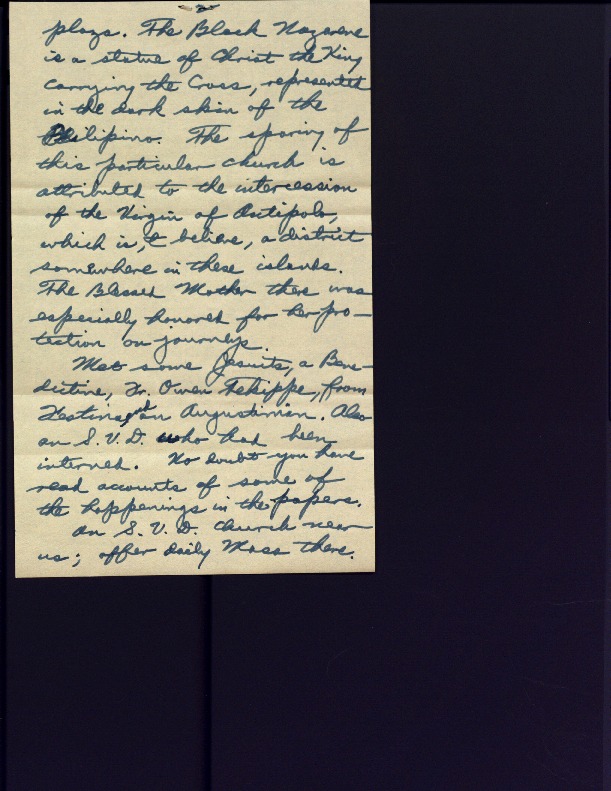 2
plaza. The Black Nazarene
is a statue of Christ the King
carrying the Cross, represented
in the dark skin of the
Philipino. The sparing of
this particular church is
attributed to the intercession
of the Virgin of Antipolo,
which is, I believe, a district
somewhere in these islands.
The Blessed Mother there was
especially honored for her pro-
tection on journeys.
Met some Jesuits, a Bene-
dictine, Fr. Owen Tekippe, from
Festina, and an Augustinian. Also
an S.V.D. who had been
interned. No doubt you have
read accounts of some of
the happenings in the papers.
An S.V.D. church near
us; offer daily Mass there.